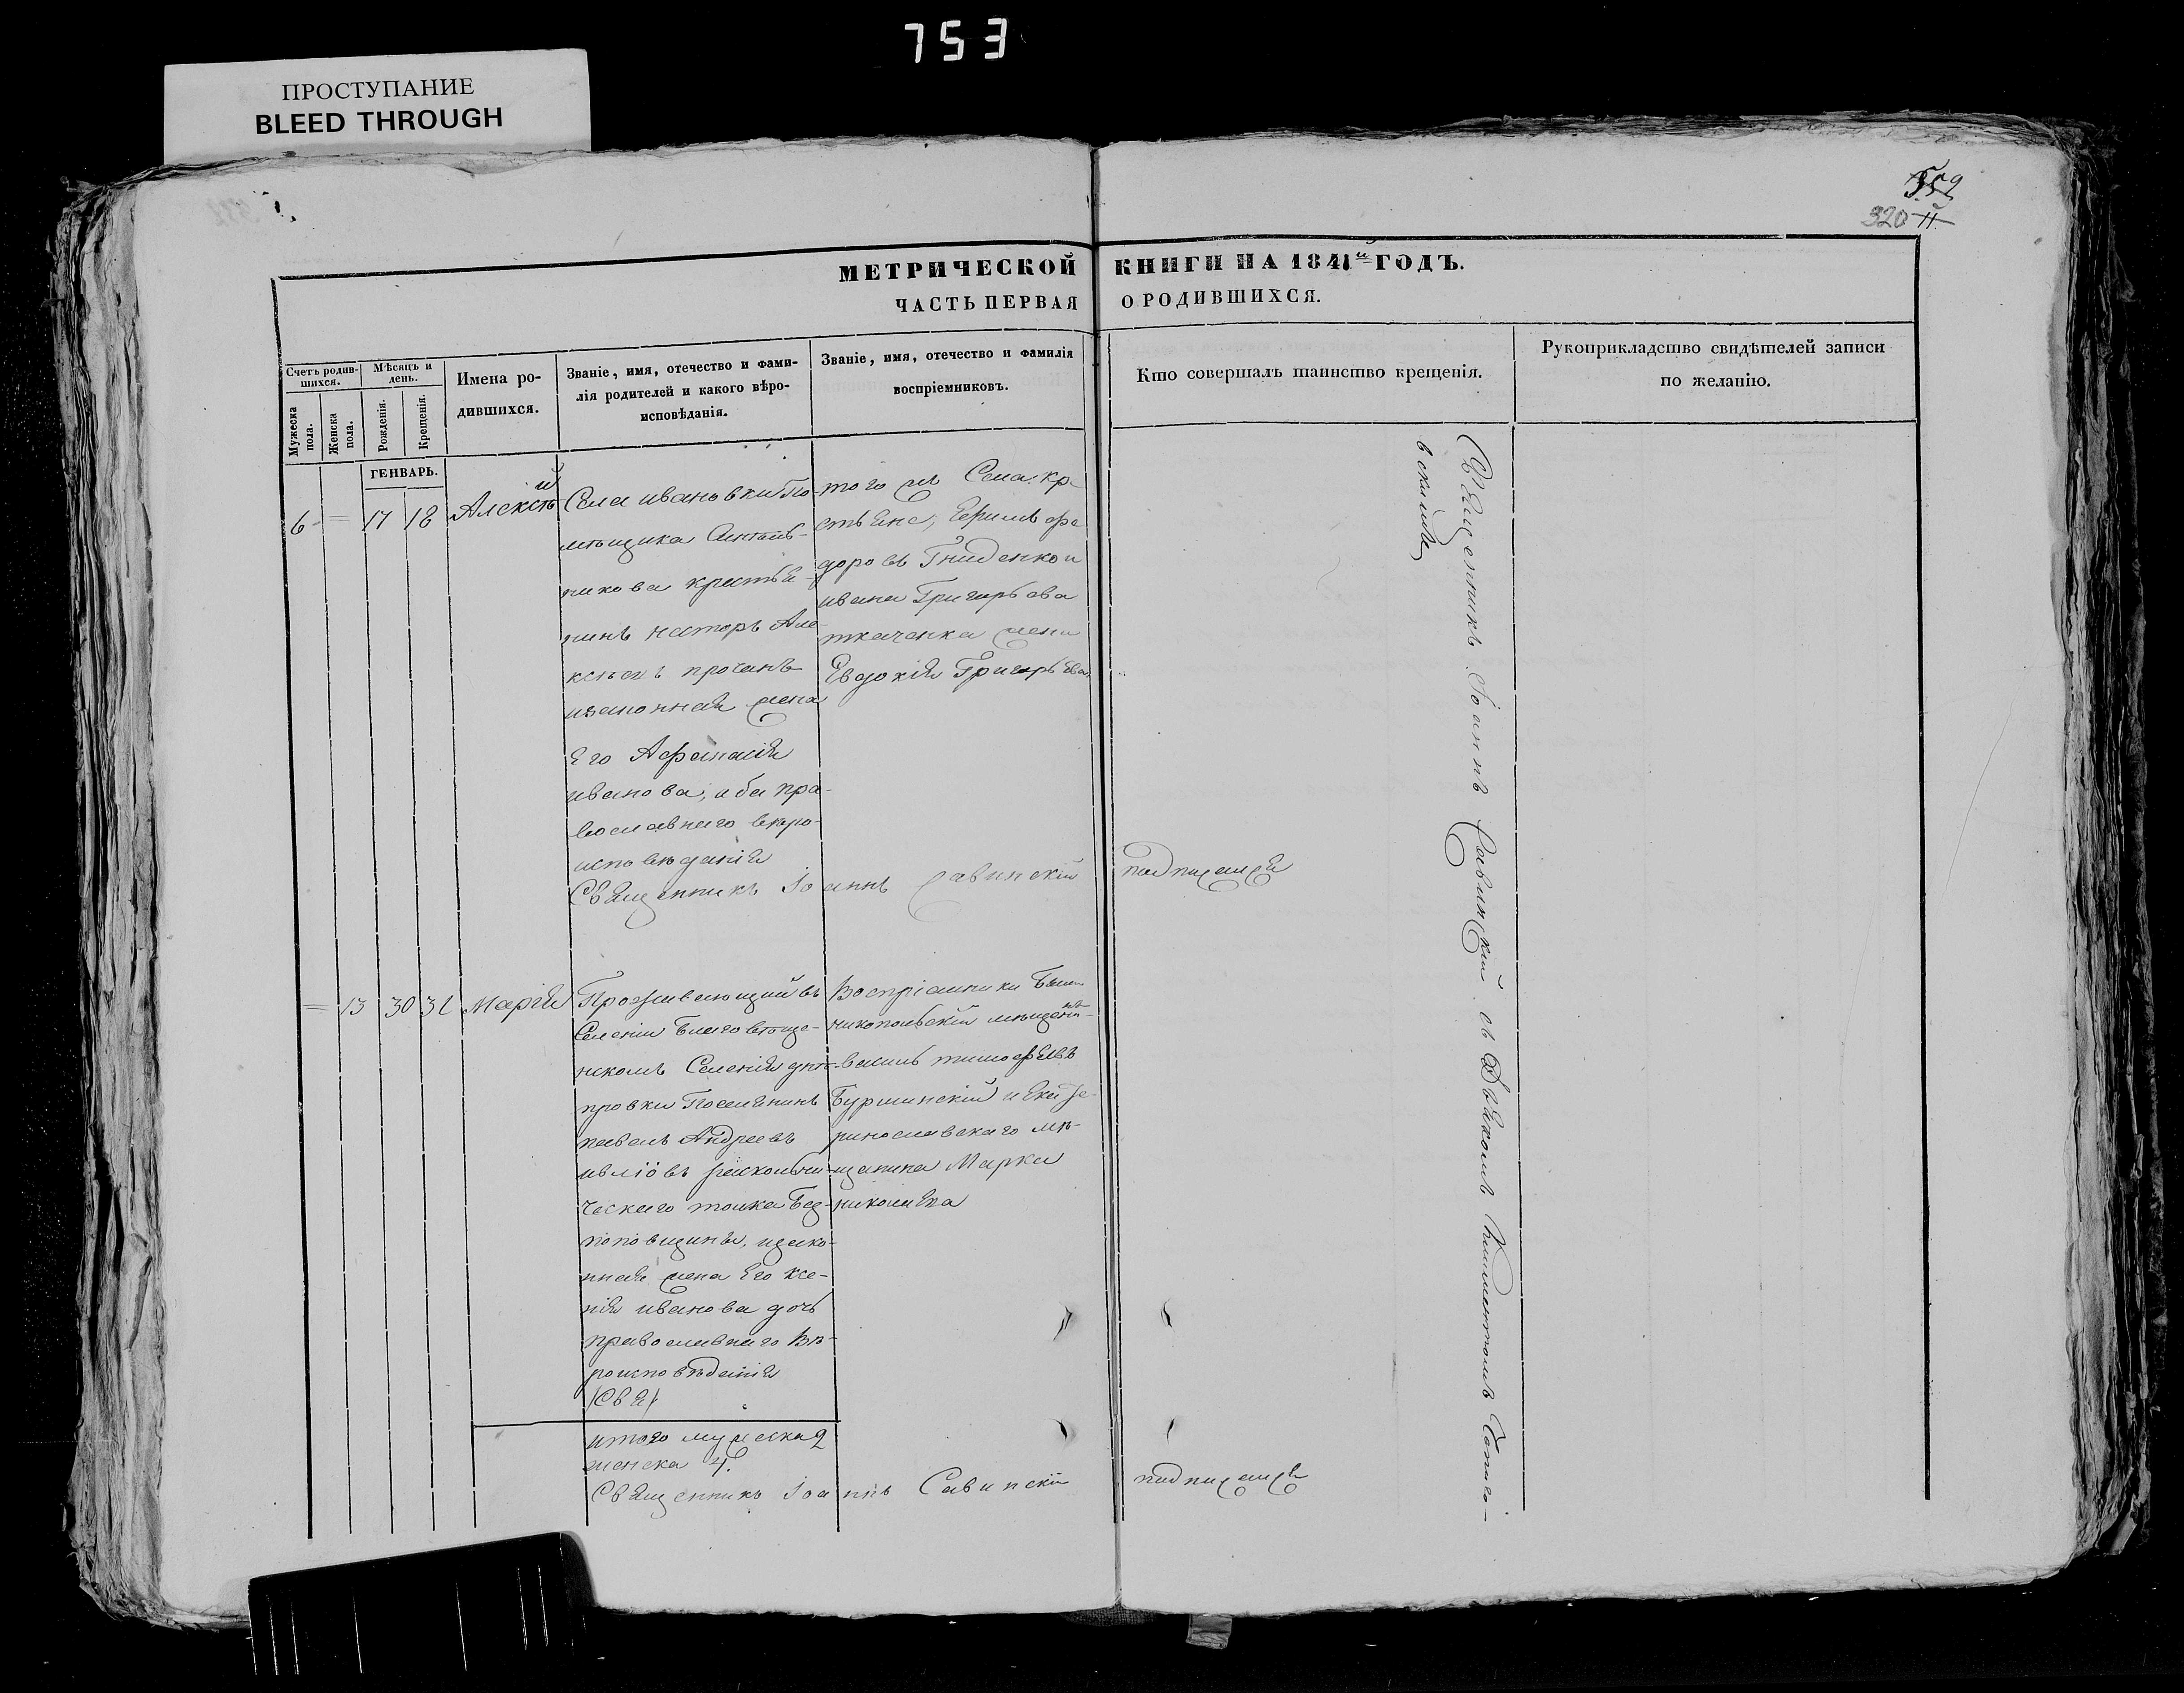 753
ПРОСТУПАНИЕ
BLEED THROUGH
320
МЕТРИЧЕСКОЙ КНИГИ НА 1841й ГОДЪ.
ЧАСТЬ ПЕРВАЯ О РОДИВШИХСЯ.
Счетъ родив-
шихся.
Мужеска
пола.
Женска
пола.
Мѣсяцъ и
день.
Рожденія.
Крещенія.
Имена ро-
дившихся.
Званіе, имя, отечество и фами-
лія родителей и какого вѣро-
исповѣданія.
Званіе, имя, отечество и фамилія
воспріемниковъ.
Кто совершалъ таинство крещенія.
Рукоприкладство свидѣтелей записи
по желанію.
ГЕНВАРЬ.
6 = 17 18
Алексѣй
Села ивановки По-
мѣщика
никова крестья-
нинъ несторъ Але-
ксѣевъ
законная жена
Его Афанасія
иванова, оба пра-
вославнаго вѣро-
исповѣданія
того жъ Села кре-
стьяне, Ефимъ фе
доровъ Гниденко и
ивана Григорьева
ткаченка жена
Евдокія Григорьева
Священникъ Іоаннъ Савинскій подписался
= 13 30 31
Марія
Проживающий въ
Селеніи Благовѣще-
нскомъ Селенія днѣ-
провки Поселянинъ
павелъ Андреевъ
раскольни-
ческаго толка Без-
поповщины, зако-
нная жена Его ксе-
нія иванова дочь
православнаго вѣ-
роисповѣданія
воспріемники
никопольскій мѣщанинъ
василь тимофѣевъ
Буршинскій и Екате-
ринославскаго мѣ-
щанина Марка
николаева
итого мужеска 2
женска 4.
Священникъ Іоаннъ Савинскій подписался
Священникъ Іоаннъ Савинскій съ Дьякомъ Климентомъ